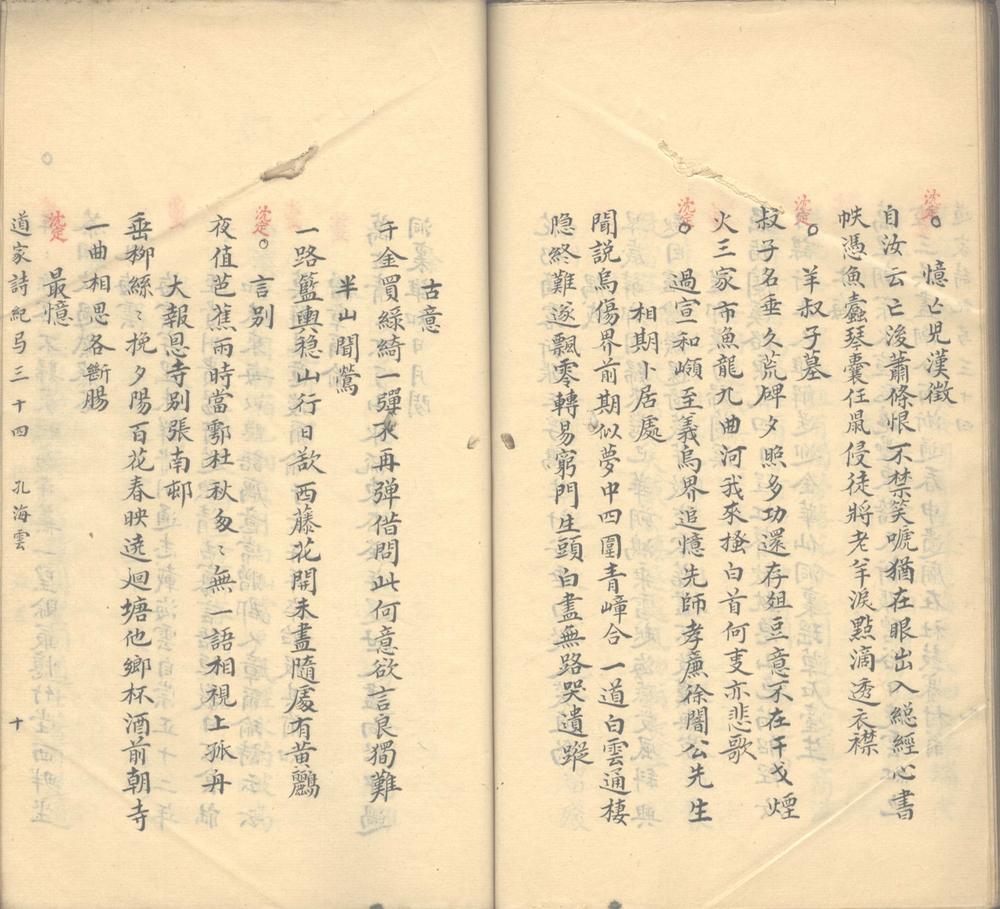 沈選
憶亡児漢徵
自汝云亡後蕭條恨不禁笑啼猶在眼出入総經心書
帙憑魚蠹琴囊任鼠侵徒將老年淚點滴透衣襟
沈選
羊叔子墓
叔子名垂久荒碑夕照多功還存俎豆意不在干戈煙
火三家市魚龍九曲河我來搔白首何事亦悲歌
沈選
過宣一和嶺至義烏界追憶先師孝廉徐闇公先生
相期小居處
聞説烏傷界前期似夢中四圍青嶂合一道白雲通棲
隐終難遂飄零轉易窮門生頭白盡無路哭遺蹤
古意
千金買緑綺一彈不再弹借問此何意欲言良獨難
半山聞鶯
一路籃輿稳山行日㱆西藤花開未盡隨處有黄鸝
沈選
言别
夜值芭蕉雨時當鄠杜秋匆〻無一語相視上孤舟
大報恩寺别張南邨
垂柳絲〻挽夕陽百花春映遶廻塘他鄉杯酒前朝寺
一曲相思各斷腸
沈選
最憶
道家詩紀弓三十四 孔海雲 十